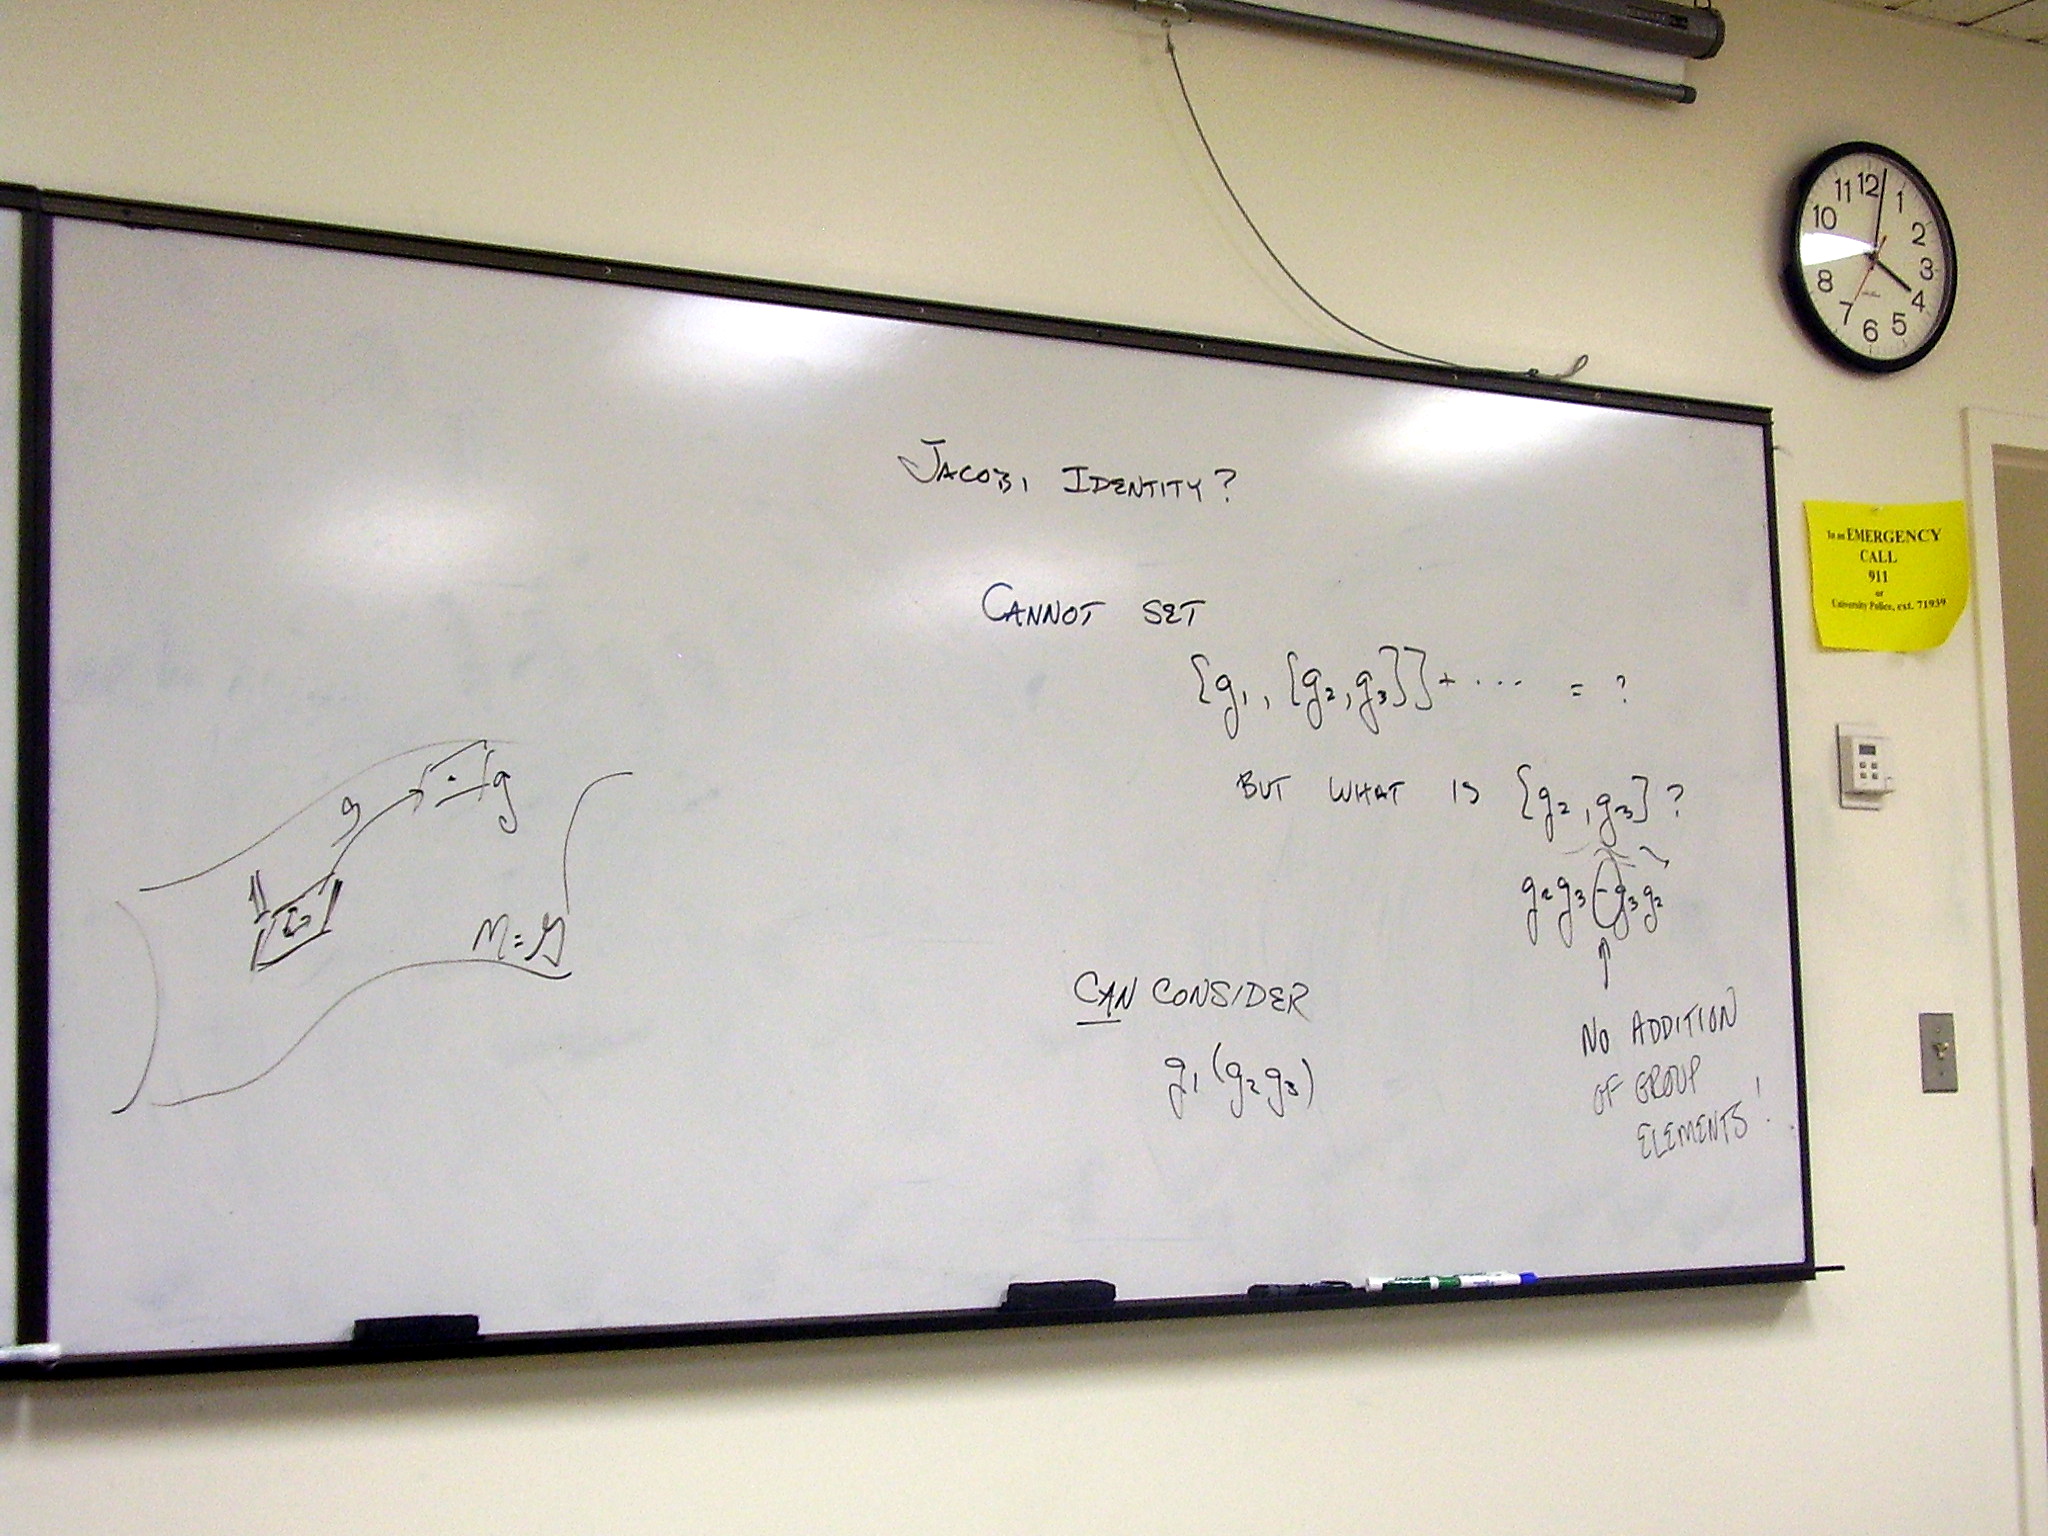 JACOBI IDENTITY?
CANNOT SET
{g₁, {g₂, g₃}} + ··· = ?
BUT WHAT IS {g₂, g₃}?
g₂g₃ - g₃g₂
↑
NO ADDITION
OF GROUP
ELEMENTS!
CAN CONSIDER
g₁(g₂g₃)
g
g
1
M = G
12
1
2
3
4
5
6
7
8
10
11
In an EMERGENCY
CALL
911
or
University Police, ext. 71939